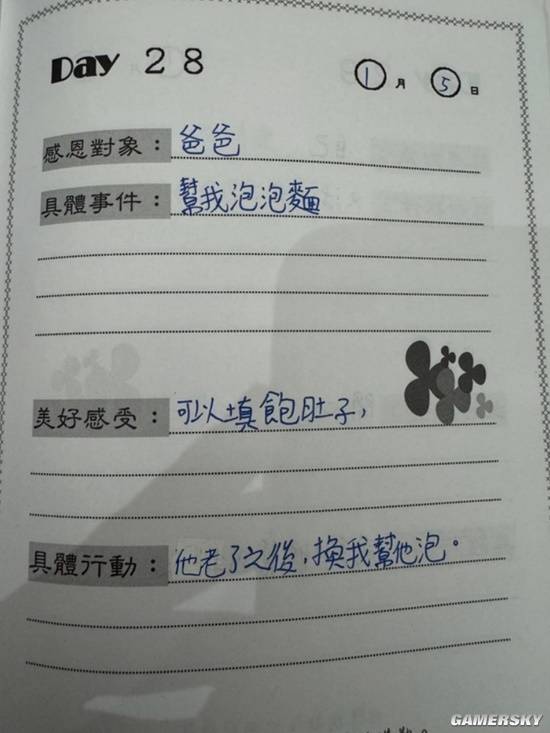 Day 28
1月5日
感恩對象：爸爸
具體事件：幫我泡泡麵
美好感受：可以填飽肚子，
具體行動：他老了之後，換我幫他泡。
GAMERSKY